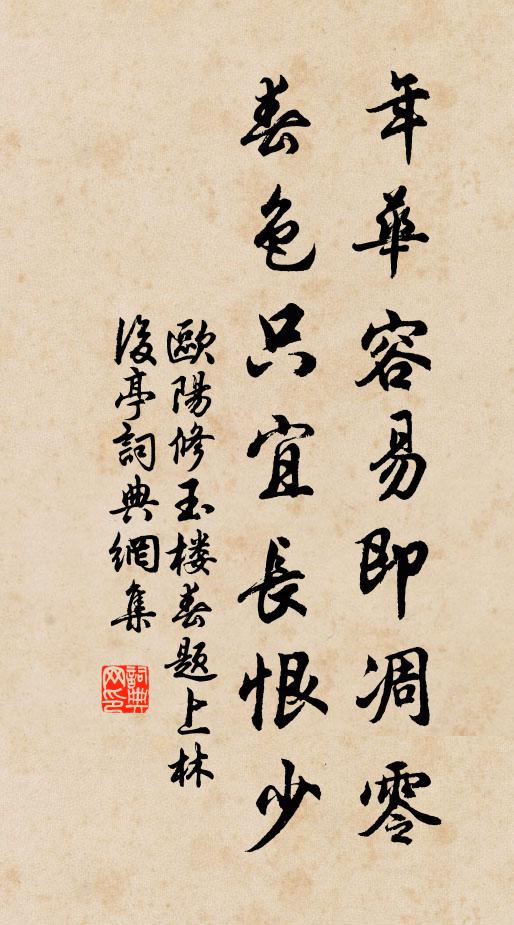 年華容易即凋零
春色只宜長恨少
歐陽修玉楼春題上林
後亭詞典網集
詞典
网印